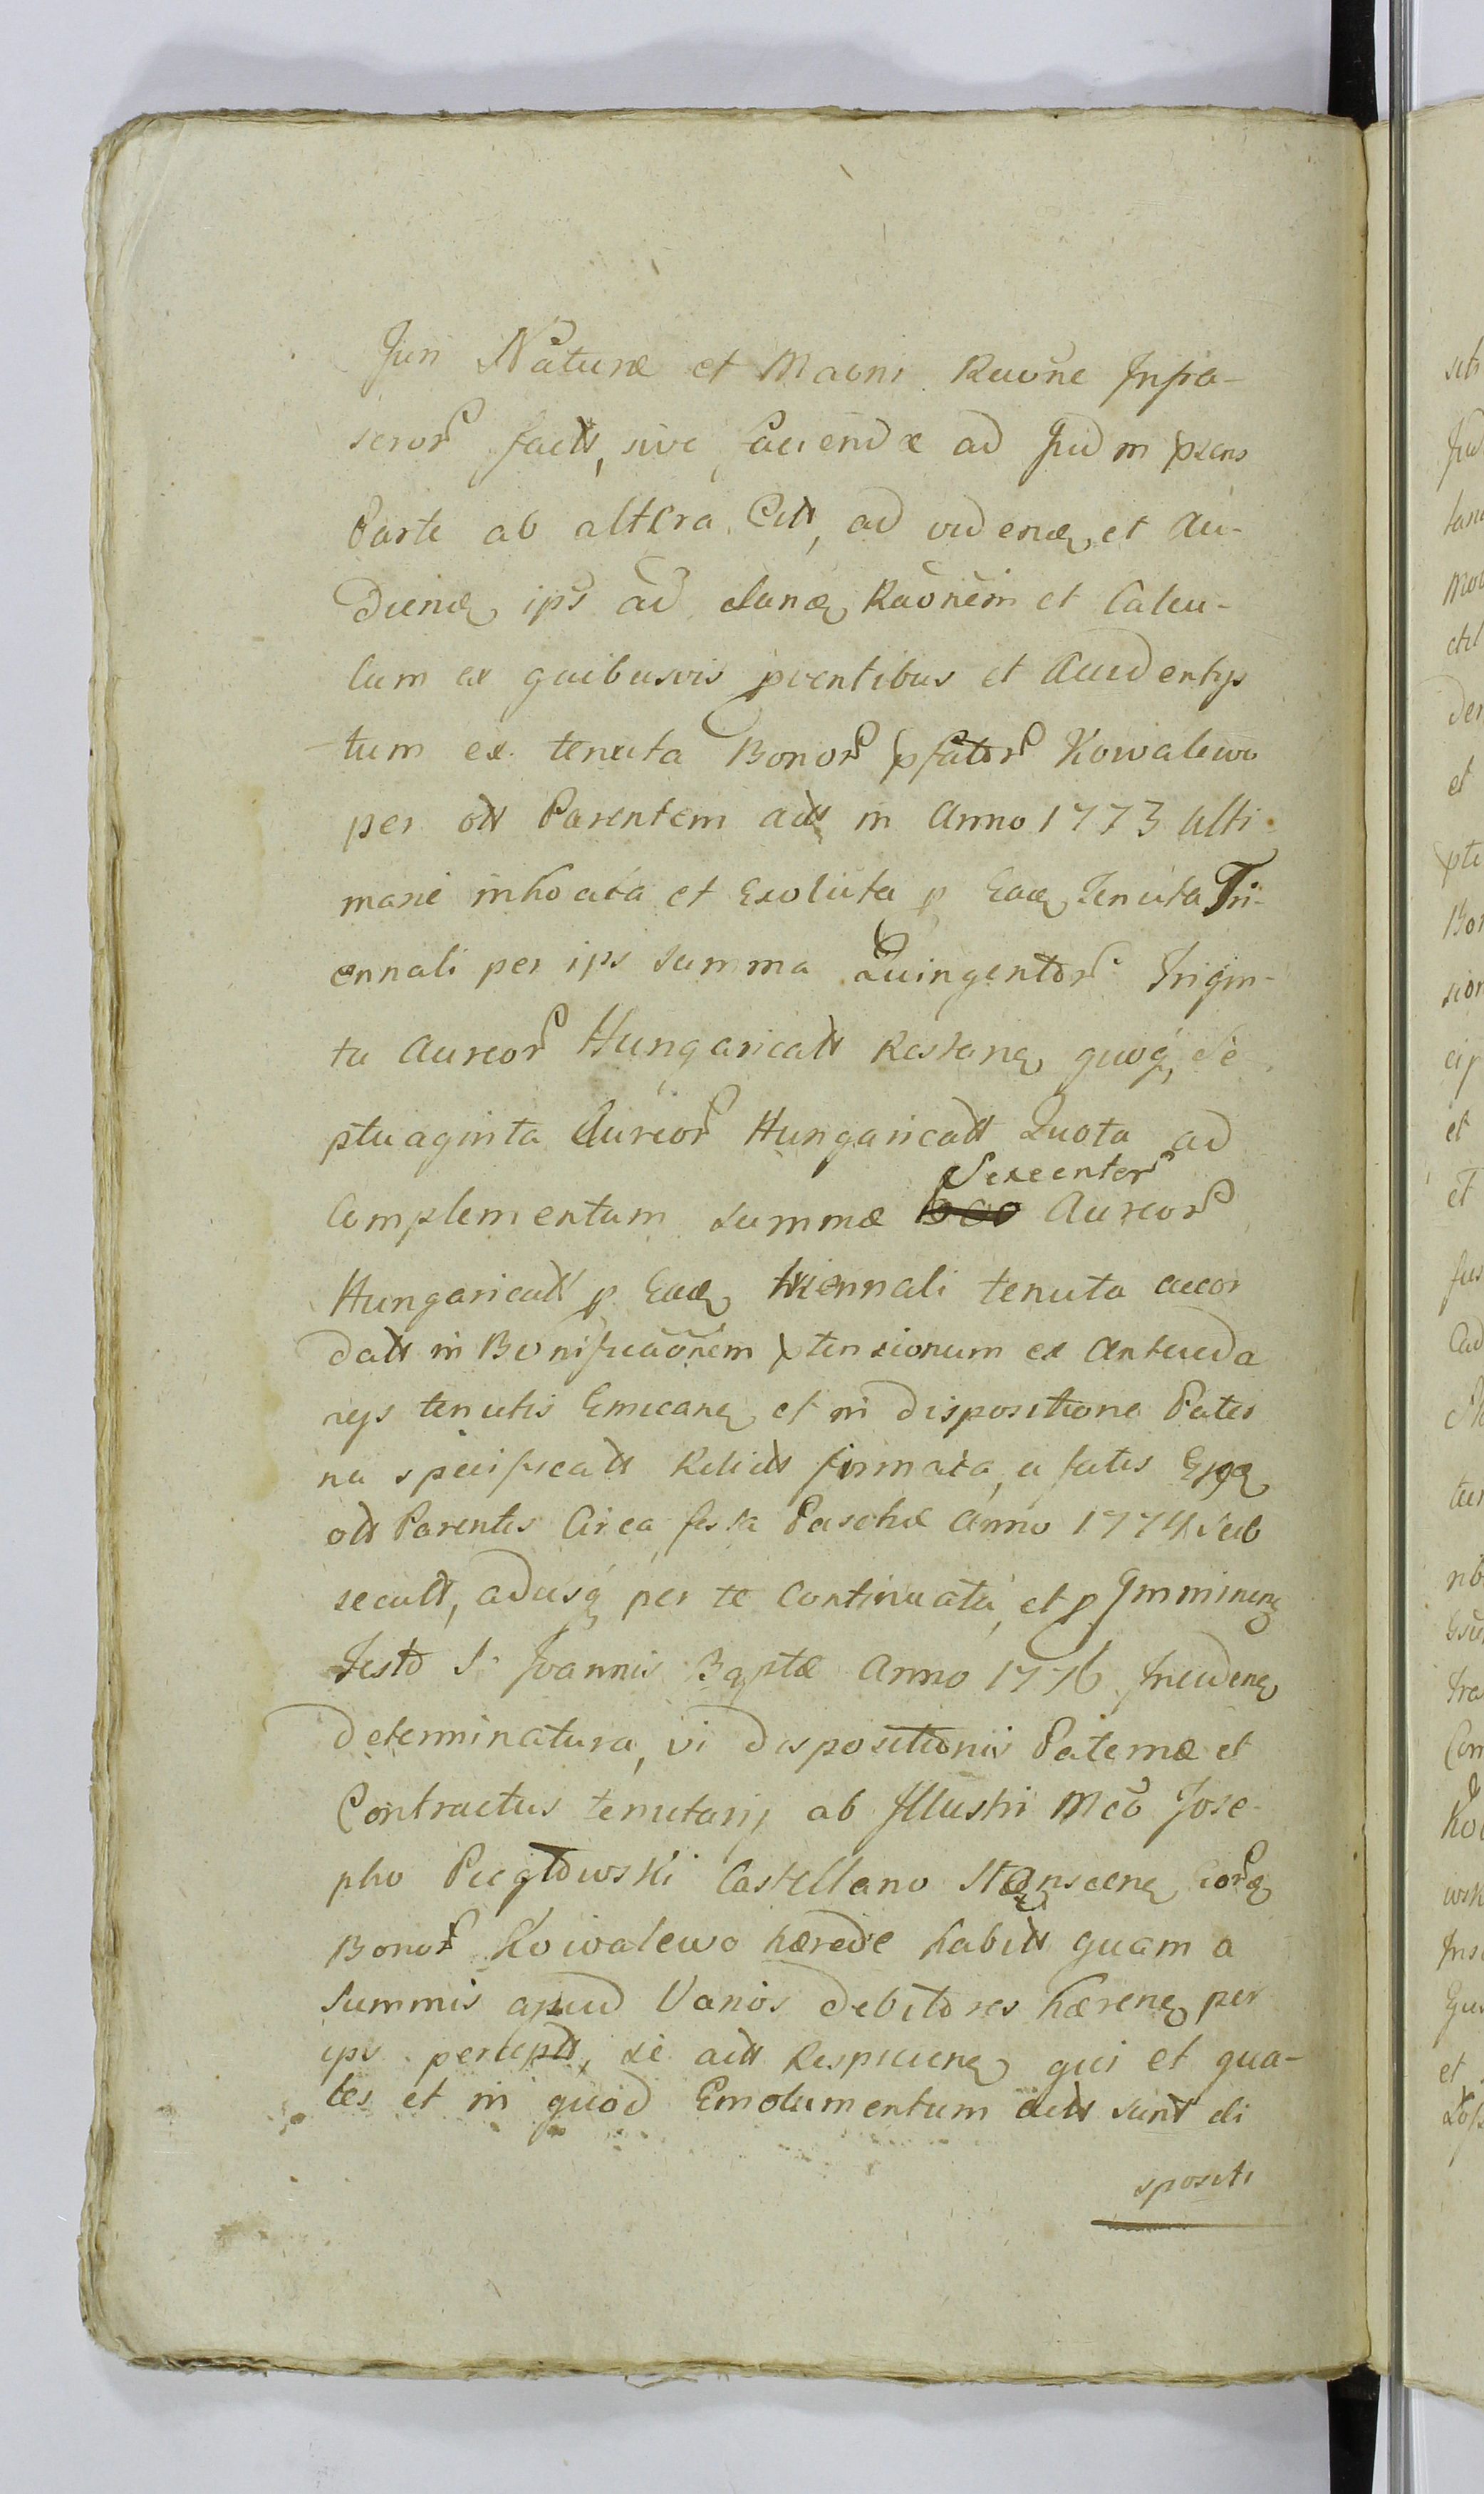 Juri Naturæ et Macni Raoñe Infra-
scror̃ factt, sive faciendæ ad Judm pxens
Parte ab altera Citt, ad videnđ et Au-
diend ips ad dand Raoñem et Calcu-
lum ex quibusvis pventibus et Accidentys
tum ex tenuta Bonor̃ pfator̃ Kowalewo
per ott Parentem actt in Anno 1773 ulti
marie inhoata et Exoluta p Ead Tenuta Tri-
ennali per ips summa Quingentor̃ Trigin-
ta Aureor̃ Hungaricatt Restanq quoq, Se
ptuaginta Aureor̃ Hungaricatt Quota ad
Complementum summæ Sexcentor̃ Aureor̃
Hungaricatt p Ead triennali tenuta accor
datt in Bonificaoñem ptensionum ex Anteceda
neys tenutis Emicanq et in dispositione Pater
na specificatt Relictt firmata, a fatis Ejqd
ott Parentis Circa festa Paschæ Anno 1774 Sub
secutt, adusq per te Continuata, et p Imminenq
Festo S. Joannis Baptæ Anno 1776 Incidenq
determinatura, vi dispositionis Paternæ et
Contractus tenutarij ab Illustri Mco Jose-
pho Pięgłowski Castellano Stęnscenq Eorq
Bonor̃ Kowalewo hærede habitt quam a
summis apud Varios debitores hærenq per
ips perceptt, se actt Respicienq qui et qua-
les et in quod Emolumentum actt sunt di
spositi